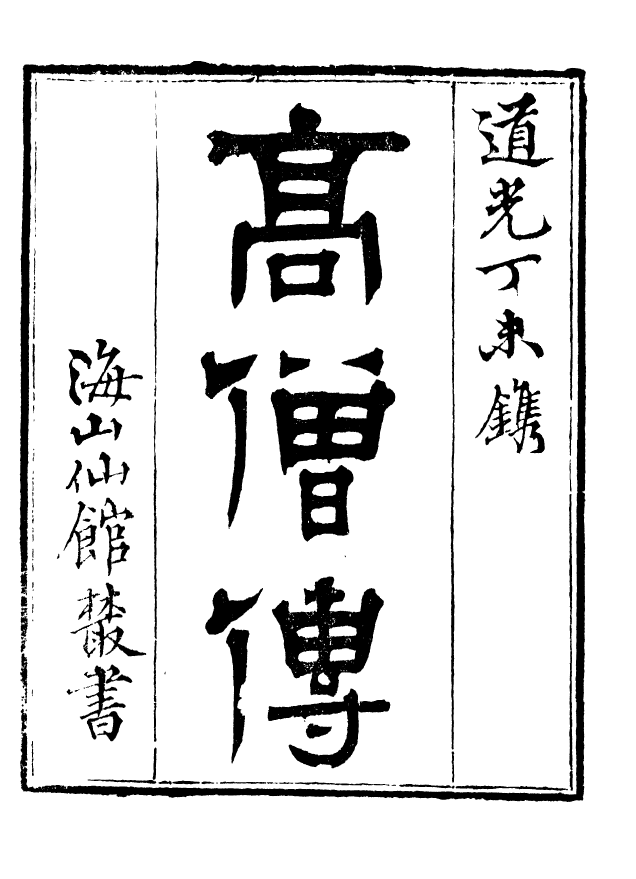 道光丁未鐫
髙僧傳
海山仙館叢書